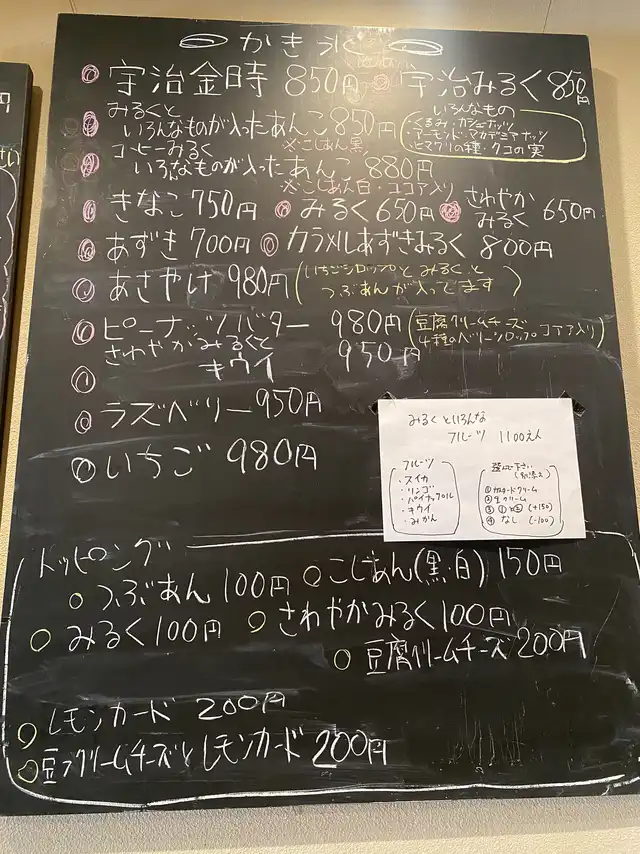 かき氷
宇治金時 850円 宇治みるく 850円
みるくと
いろんなものが入ったあんこ 850円
※こしあん黒
いろんなもの
・くるみ・カシューナッツ
・アーモンド・マカデミアナッツ
・ヒマワリの種・クコの実
コーヒーみるく
いろんなものが入ったあんこ 880円
※こしあん白・ココア入り
きなこ 750円 みるく 650円 さわやか
みるく 650円
あずき 700円 カラメルあずきみるく 800円
あさやけ 980円 (いちごシロップとみるくと
つぶあんが入ってます)
ピーナッツバター 980円 (豆腐クリームチーズ
4種のベリーシロップココア入り)
さわやかみるくと
キウイ 950円
ラズベリー 950円
いちご 980円
みるくといろんな
フルーツ 1100えん
フルーツ
・スイカ
・リンゴ
・パイナップル
・キウイ
・みかん
選んで下さい
(別添え)
①カスタードクリーム
②生クリーム
③ ①と② (+150)
④ なし (-100)
トッピング
つぶあん 100円 こしあん(黒・白) 150円
みるく 100円 さわやかみるく 100円
豆腐クリームチーズ 200円
レモンカード 200円
豆フクリームチーズとレモンカード 200円